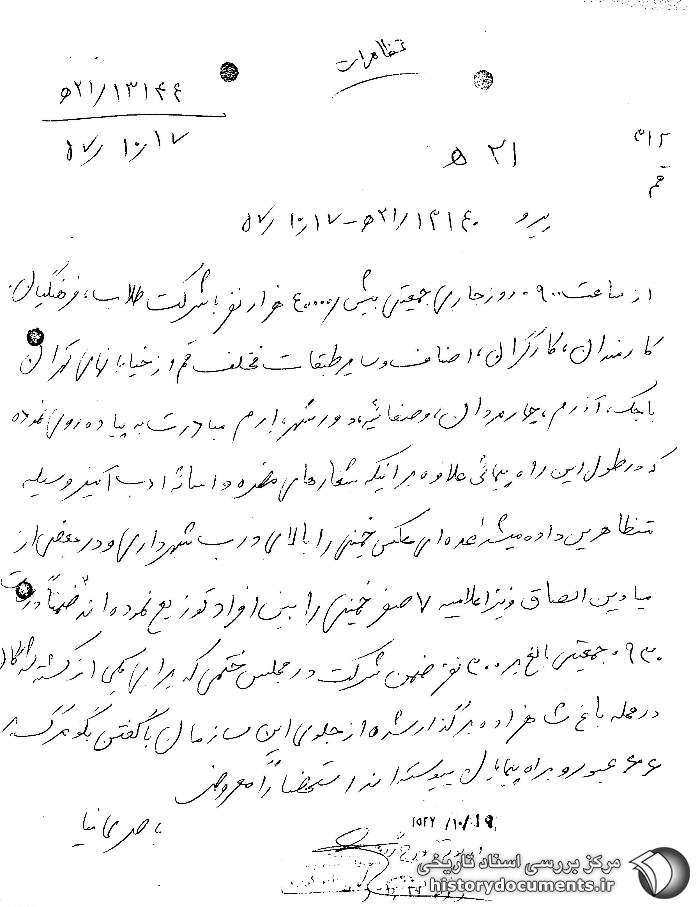 تظاهرات
۲۱/۱۳۱۴۶ه
۵۷/۱۰/۱۷
۳۱۲
۲۱ ه
قم
پیرو ۲۱/۱۳۱۴۰ه-۵۷/۱۰/۱۷
از ساعت ۰۹۰۰ روز جاری جمعیتی بیش هزار نفر با شرکت طلاب، فرهنگیان،
کارمندان، کارگران، اصناف و سایر طبقات مختلف قم از خیابانهای تهران
باجک، آذر، چهارمردان، وصفائیه، دورشهر، ارم مبادرت به پیاده روی نموده
که در طول این راه پیمائی علاوه بر اینکه شعارهای مضره و اسائه ادب آمیز وسیله
تظاهرین داده میشد عده ای عکس خمینی را بالای درب شهرداری و در بعضی از
میادین الصاق و نیز اعلامیه ۷ صفر خمینی را بین افراد توزیع نموده اند ضمناً در
۰۹۳۰ جمعیتی بالغ بر ۳۰۰ نفر ضمن شرکت در مجلس ختمی که برای یکی از کشته شدگان
در محله باغ شاهزاده برگذار شده از جلوی این سازمان با گفتن بگو مرگ بر
عبور و براه پیمایان پیوسته اند استحضاراً معروض
۱۵۲۷/۱۰/۱۹
مرکز بررسی اسناد تاریخی
historydocuments.ir